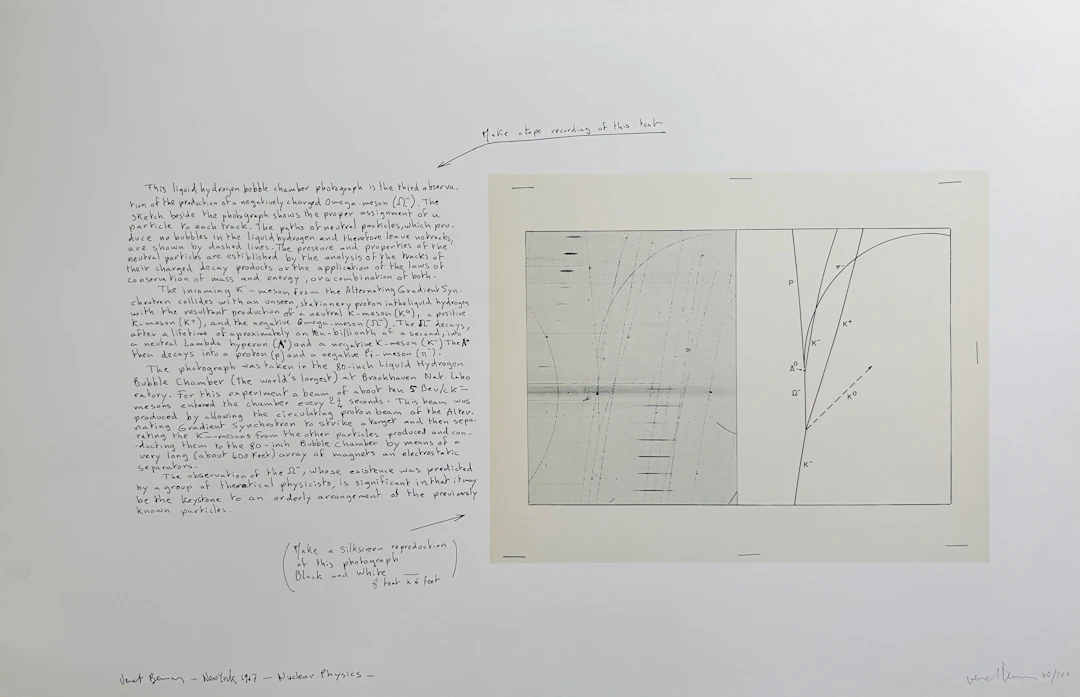 Make a tape recording of this text
This liquid hydrogen bobble chamber photograph is the third observa-
tion of the production of a negatively charged Omega-meson (Ω⁻). The
sketch beside the photograph shows the proper assignment of a
particle to each track. The paths of neutral particles, which pro-
duce no bubbles in the liquid hydrogen and therefore leave no tracks,
are shown by dashed lines. The presence and properties of the
neutral particles are established by the analysis of the tracks of
their charged decay products or the application of the laws of
conservation of mass and energy, or a combination of both.
The incoming K⁻-meson from the Alternating Gradient Syn-
chrotron collides with an unseen, stationary proton in the liquid hydrogen
with the resultant production of a neutral K-meson (K⁰), a positive
K-meson (K⁺), and the negative Omega-meson (Ω⁻). The Ω⁻ decays,
after a lifetime of aproximately on ten-billionth of a second, into
a neutral Lambda hyperon (Λ⁰) and a negative K-meson (K⁻) The Λ⁰
then decays into a proton (p) and a negative Pi-meson (π⁻).
The photograph was taken in the 80-inch Liquid Hydrogen
Bubble Chamber (the world's largest) at Brookhaven Nat. Labo
ratory. For this experiment a beam of about ten 5 Bev/c K-
mesons entered the chamber every 2½ seconds. This beam was
produced by allowing the circulating proton beam of the Alter-
nating Gradient Synchrotron to strike a target and then sepa-
rating the K⁻-mesons from the other particles produced and con-
-ducting them to the 80-inch Bubble Chamber by means of a
very long (about 400 Feet) array of magnets an electrostatic
separators.
The observation of the Ω⁻, whose existence was predicted
by a group of theoretical physicists, is significant in that it may
be the keystone to an orderly arrangement of the previously
known particles.
π⁻
P
K⁺
K⁻
Λ⁰
Ω⁻
K⁰
K⁻
(Make a silkscreen reproduction
of this photograph
Black and White
8 feet x 6 feet)
Venet Bernar – New York 1967 – Nuclear Physics –
40/100